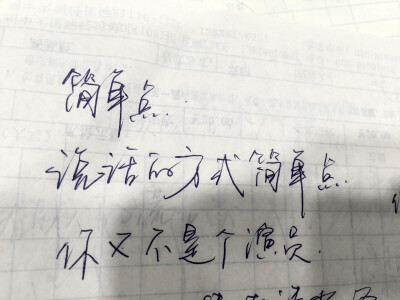 简单点.
说话的方式简单点.
你又不是个演员.